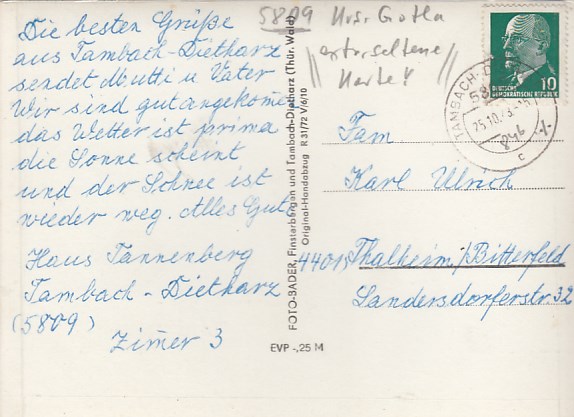 Die besten Grüße
aus Tambach-Dietharz
sendet Mutti u Vater
Wir sind gut angekom̅e
das Wetter ist prima
die Sonne scheint
und der Schnee ist
wieder weg. Alles Gut
Haus Tannenberg
Tambach-Dietharz
(5809)
Zim̅er 3
5809 Krs. Gotha
seltene
Karte!
FOTO-BADER, Finsterbergen und Tambach-Dietharz (Thür. Wald)
Original-Handabzug R 31/72 V/6/10
EVP -,25 M
10
DEUTSCHE
DEMOKRATISCHE REPUBLIK
TAMBACH-D
58
25.10.73
c
Fam
Karl Ulrich
44015 Thalheim/Bitterfeld
Sandersdorferstr. 32